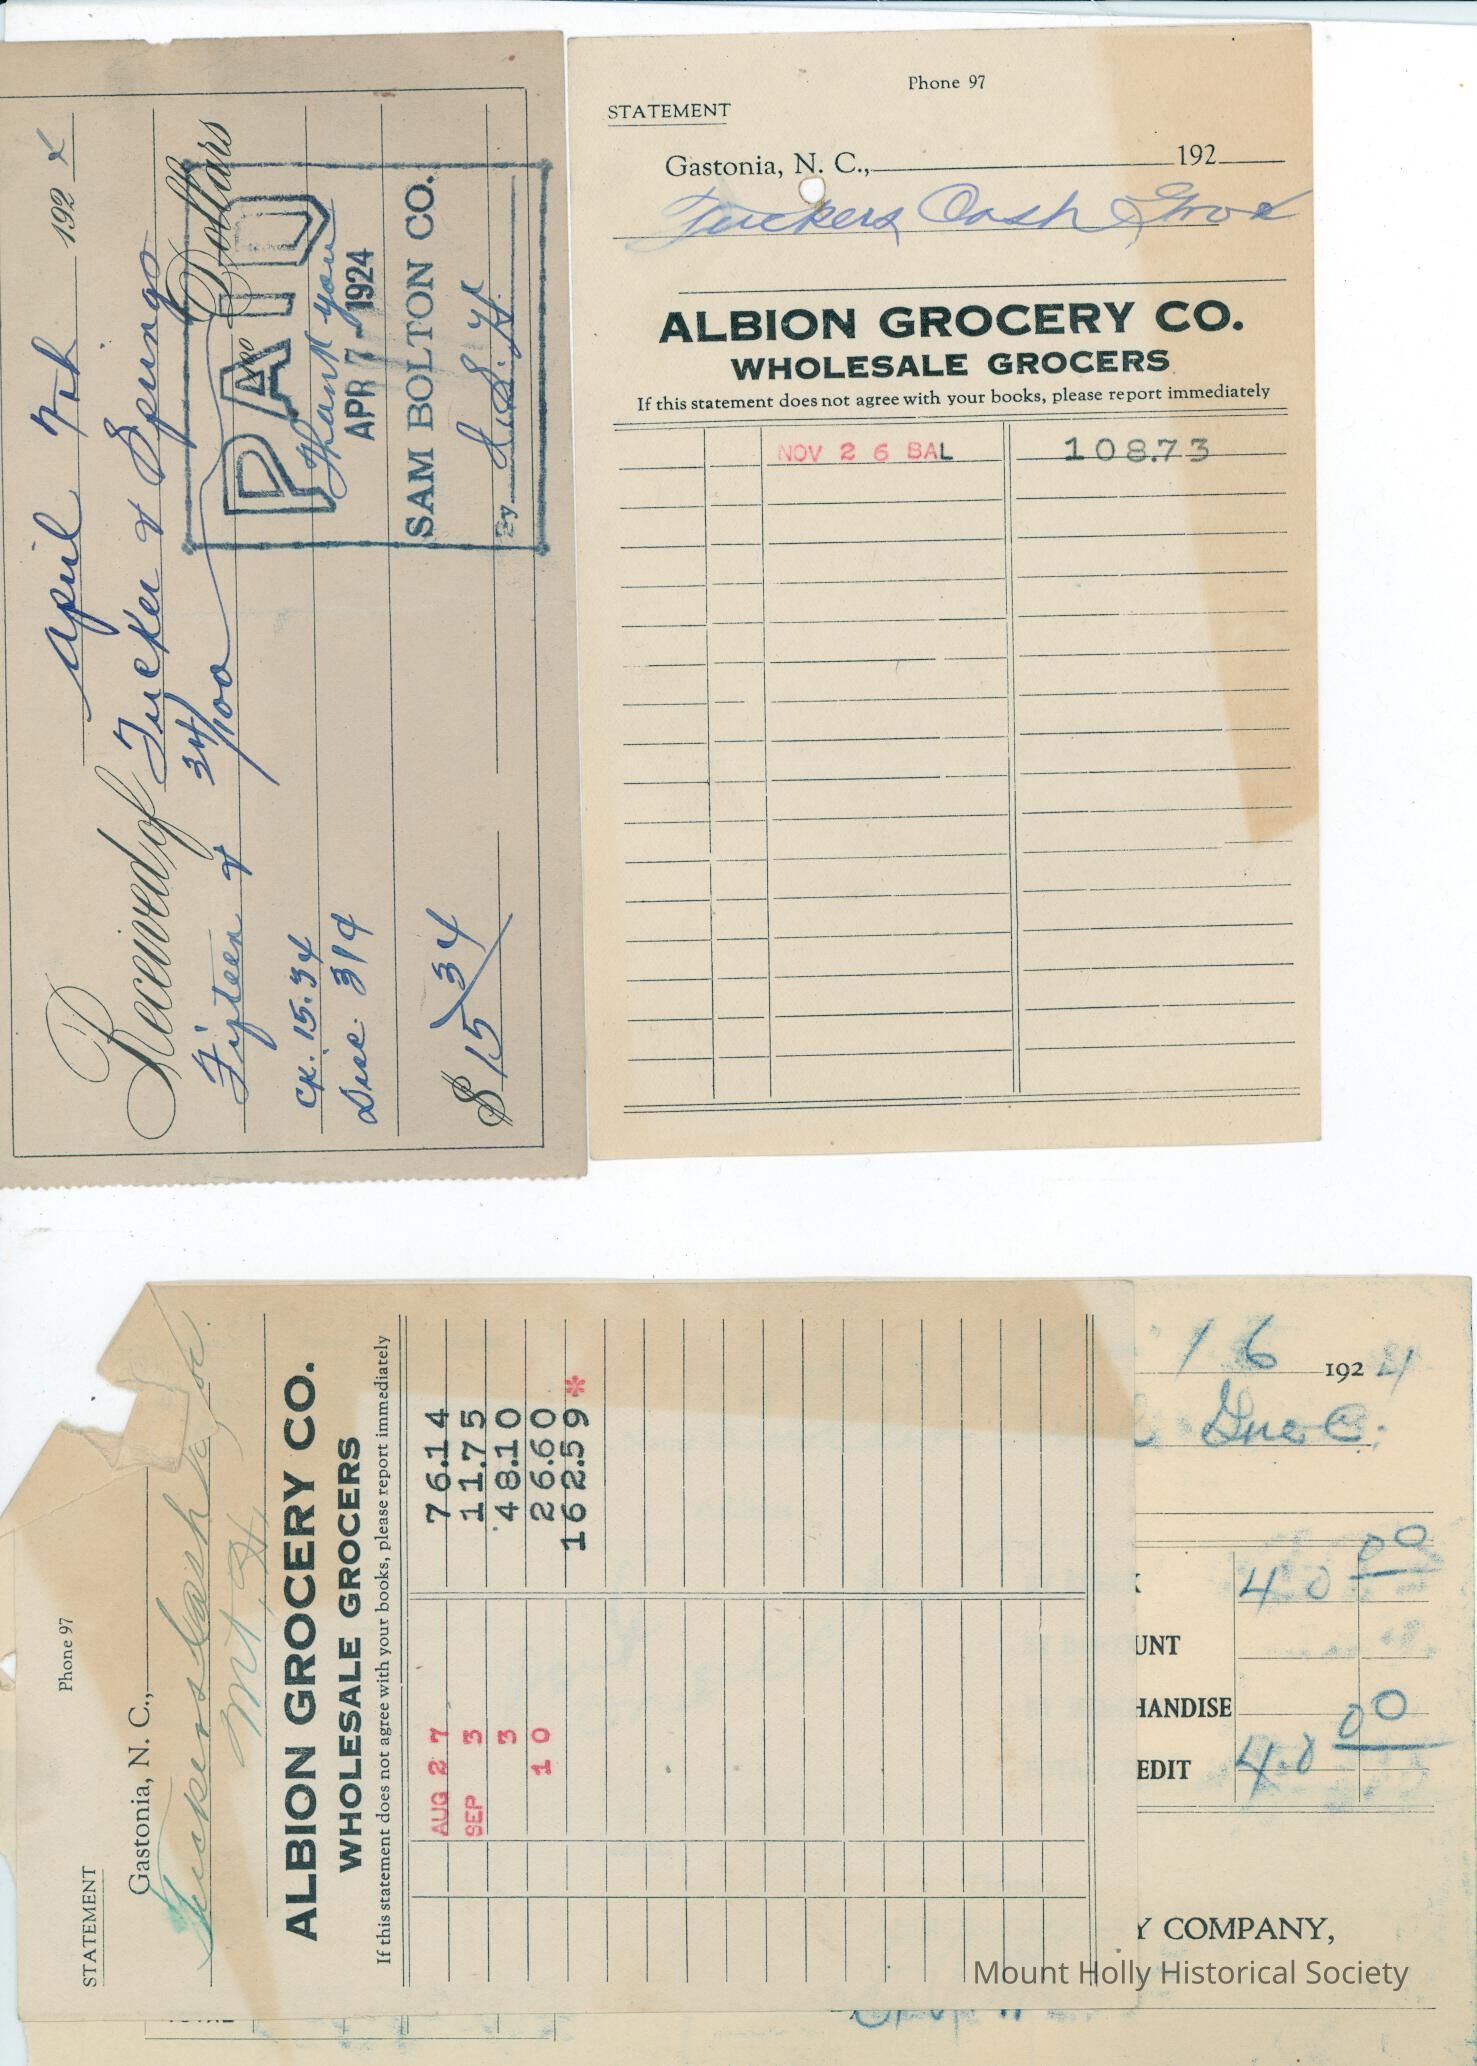 April 7th 192 4
Received of Tucker & Springs
Fifteen & 34/100 Dollars
Ck. 15.34
Disc. 314
$ 15 34
PAID
Thank you
APR 7 - 1924
SAM BOLTON CO.
By
Phone 97
STATEMENT
Gastonia, N. C., 192
Tuckers Cash Groc
ALBION GROCERY CO.
WHOLESALE GROCERS
If this statement does not agree with your books, please report immediately
NOV 26 BAL 108.73
Phone 97
STATEMENT
Gastonia, N. C.,
Tuckers Cash
Mt. H.
ALBION GROCERY CO.
WHOLESALE GROCERS
If this statement does not agree with your books, please report immediately
AUG 27 76.14
SEP 3 11.75
3 48.10
10 26.60
162.59*
16 192 4
Gro Co.
40 00
UNT
HANDISE
EDIT 40 00
Y COMPANY,
TOTAL
Mount Holly Historical Society